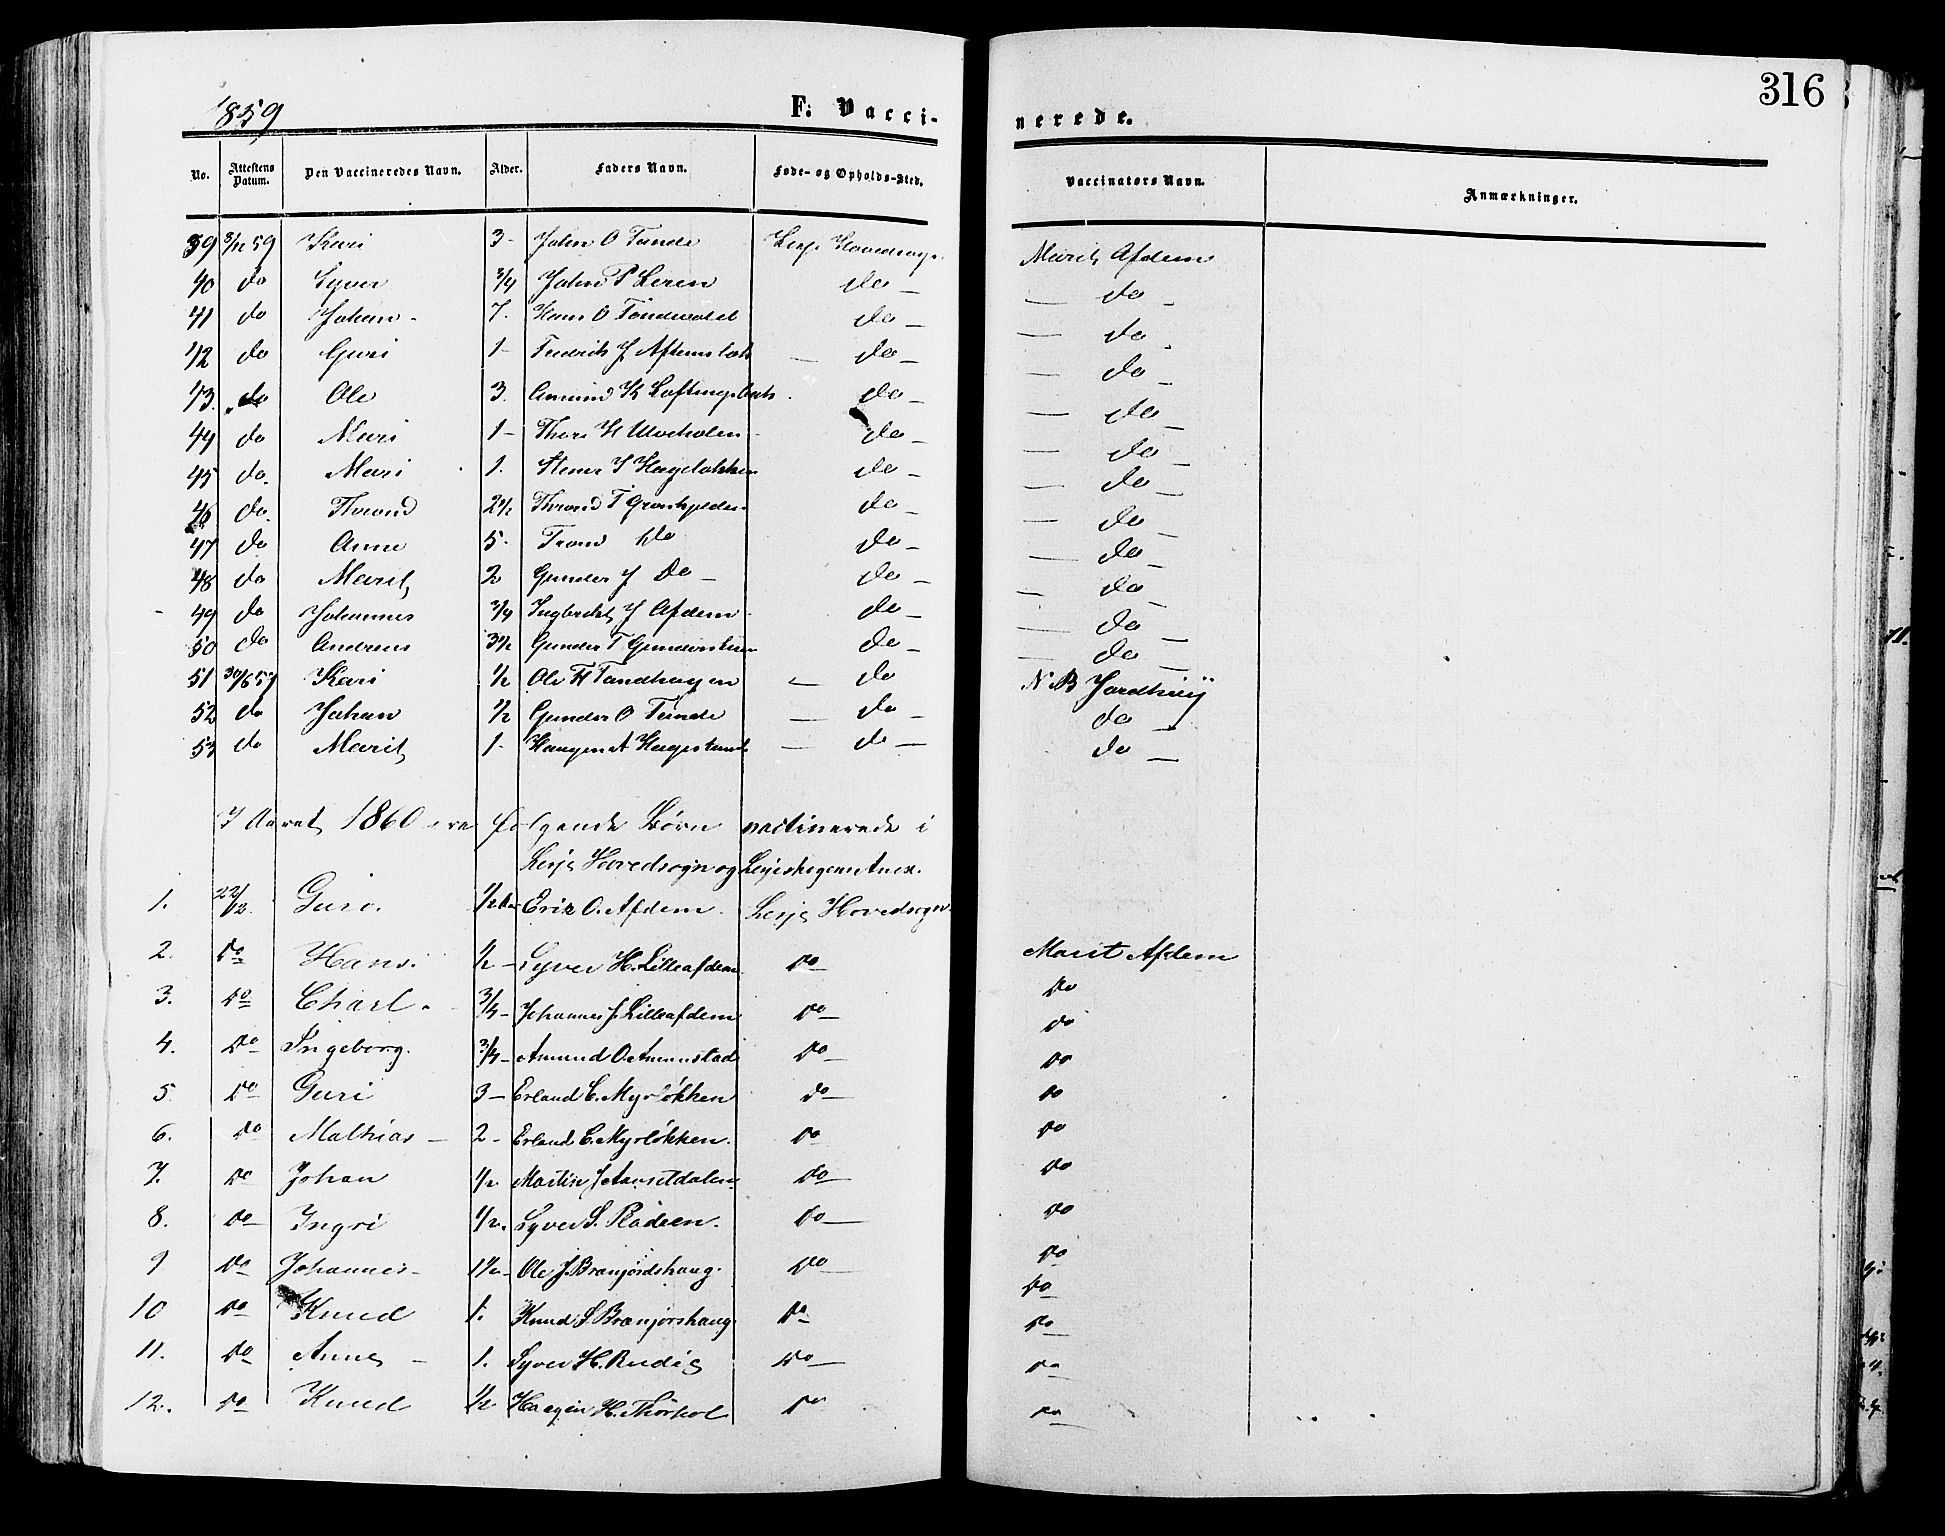 316
1859 F. Vacci- nerede.
No. Attestens Datum. Den Vaccineredes Navn. Alder. Faders Navn. Føde- og Opholds-Sted. Vaccinators Navn. Anmærkninger.
39 3/12 59 Kari 3 - John O Tande Lesje Hovedsogn Marit Afdem
40 do Syver 3/4 John P Leren do - - do -
41 do Johan - 7. Hans O do - - do -
42 do Guri 1 - J - do - - do -
43. do Ole 3. Amund K do - - do -
44 do Mari 1 - Thore H Ulveholen do - - do -
45 do. Mari 1. Stener J Hageløkken do - - do -
46 do. Thrond 2 1/2 Thrond T do - - do -
47 do Anne 5. Trond do do - - do -
48 do Marit 2 Gunder J Do - do - - do -
49 do Johannes 3/4 Ingbrekt J Afdem do - - do -
50 do Andreas 3 1/2 Gunder T do - - do -
51 30/6 59 Kari 1/2 Ole H Tandhagen - do N B
52 do Johan 1/2 Gunder O Tande - do - do -
53 do Marit 1 - Haagen A - do - do -
I Aaret 1860 ere følgende Børn vactinerede i
Lesje Hovedsogn og Lesjeskogenn Anex.
1. 22/12. Guro. 1/2 Aar Erik O. Afdem. Lesje Hovedsogn
2. Do Hans. 1/2 - Syver H. Lilleafdem Do - Marit Afdem
3. Do Charl - 3/4 - Johannes J. Lilleafdem Do - Do
4. Do - Ingeborg. 3/4 - Amund O. Aumstad Do - Do
5 Do Guri 3 - Erland E. Myrløkken do - Do
6. Do Mathias - 2 - Erland E. Myrløkken. Do Do
7. Do Johan 1/2 Do - Do
8. Do - Ingri 1/2. Syver S. Do - Do
9 Do Johannes - 1 1/2 - Ole J. Brænjordshaug. Do - Do
10 Do Knud 1. Knud S. Brænjorshaug Do Do
11. Do Anne - 1. Syver H. Rudie Do - Do
12. Do Knud 1/2 Haagen H. Thørhol Do Do
Do
Do